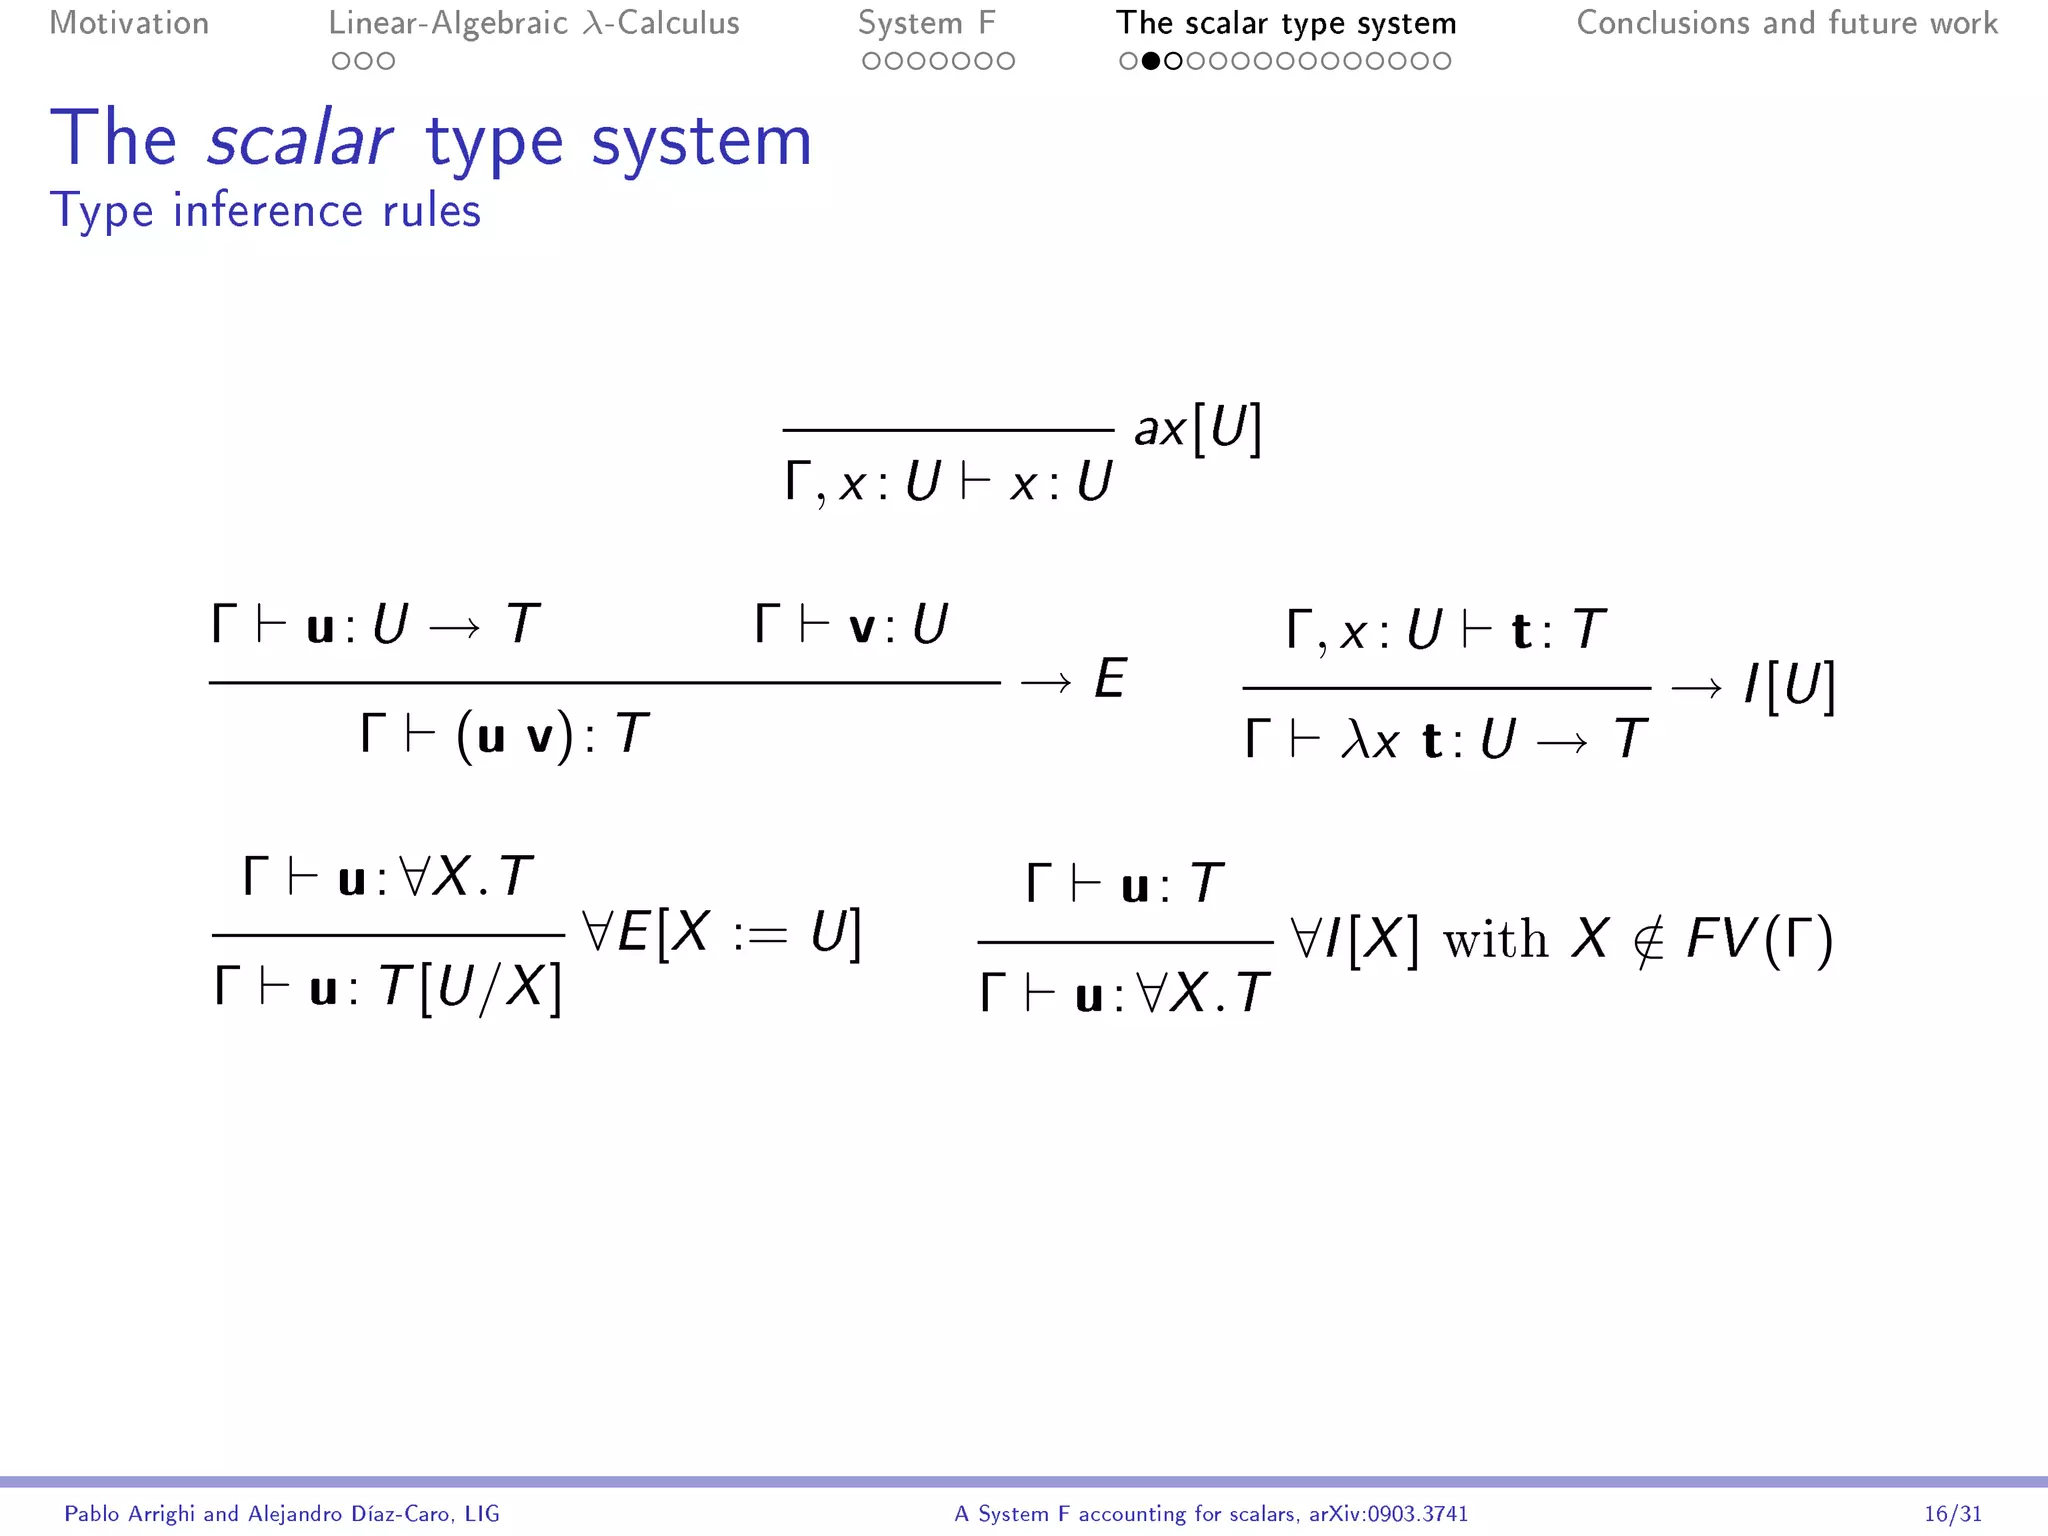 Motivation Linear-Algebraic λ-Calculus System F The scalar type system Conclusions and future work
The scalar type system
Type inference rules
ax[U]
Γ, x : U ⊢ x : U
Γ ⊢ u : U → T Γ ⊢ v : U
→ E
Γ ⊢ (u v) : T
Γ, x : U ⊢ t : T
→ I[U]
Γ ⊢ λx t : U → T
Γ ⊢ u : ∀X.T
∀E[X := U]
Γ ⊢ u : T[U/X]
Γ ⊢ u : T
∀I[X] with X ∉ FV(Γ)
Γ ⊢ u : ∀X.T
Pablo Arrighi and Alejandro Díaz-Caro, LIG A System F accounting for scalars, arXiv:0903.3741 16/31